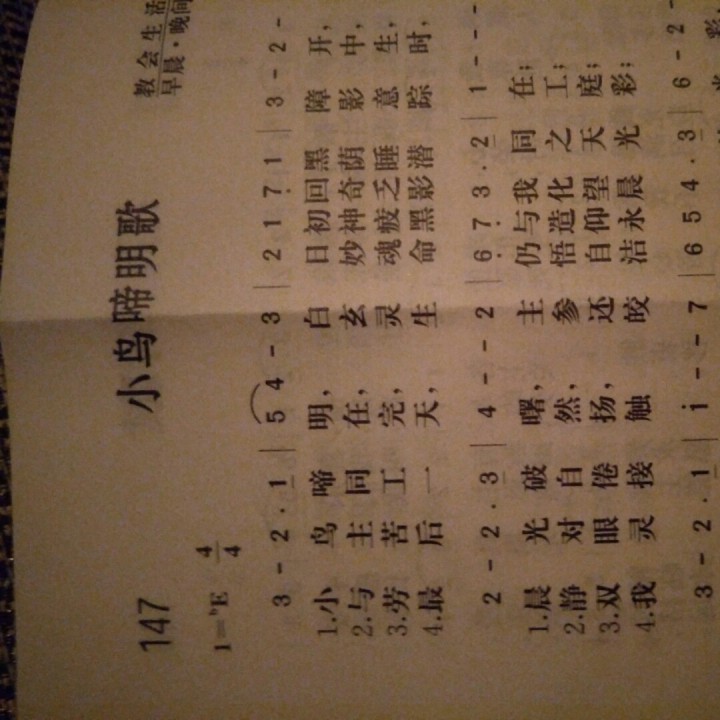 教会生活
早晨·晚间
147 小鸟啼明歌
1=♭E 4/4
3 - 2 · 1 | 5 4 - 3 | 2 1 7 1 | 3 - 2 -
1.小 鸟 啼 明, 白 日初回黑 障 开,
2.与 主 同 在, 玄 妙神奇荫 影 中,
3.劳 苦 工 完, 灵 魂疲乏睡 意 生,
4.最 后 一 天, 生 命黑影潜 踪 时,
2 - 2 · 3 | 4 - - 2 | 6 7 3 · 2 | 1 - - -
1.晨 光 破 曙, 主 仍与我 同 在;
2.静 对 自 然, 参 悟造化 之 工;
3.双 眼 倦 扬, 还 自仰望 天 庭;
4.我 灵 接 触 皎 洁永晨 光 彩;
3 - 2 · 1 | i - - 7 | 6 5 4 · 3 | 6 - 2 -